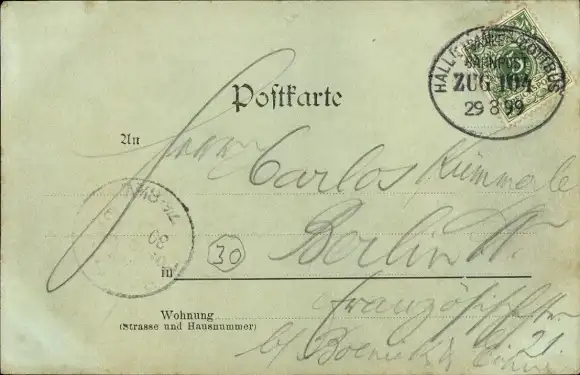 Postkarte
HALLE COTTBUS
BAHNPOST
ZUG 104
29 8 99
An Herrn
Carlos Kümmerle
30
in Berlin W.
Wohnung
(Strasse und Hausnummer)
Französischestr.
21
b/
30